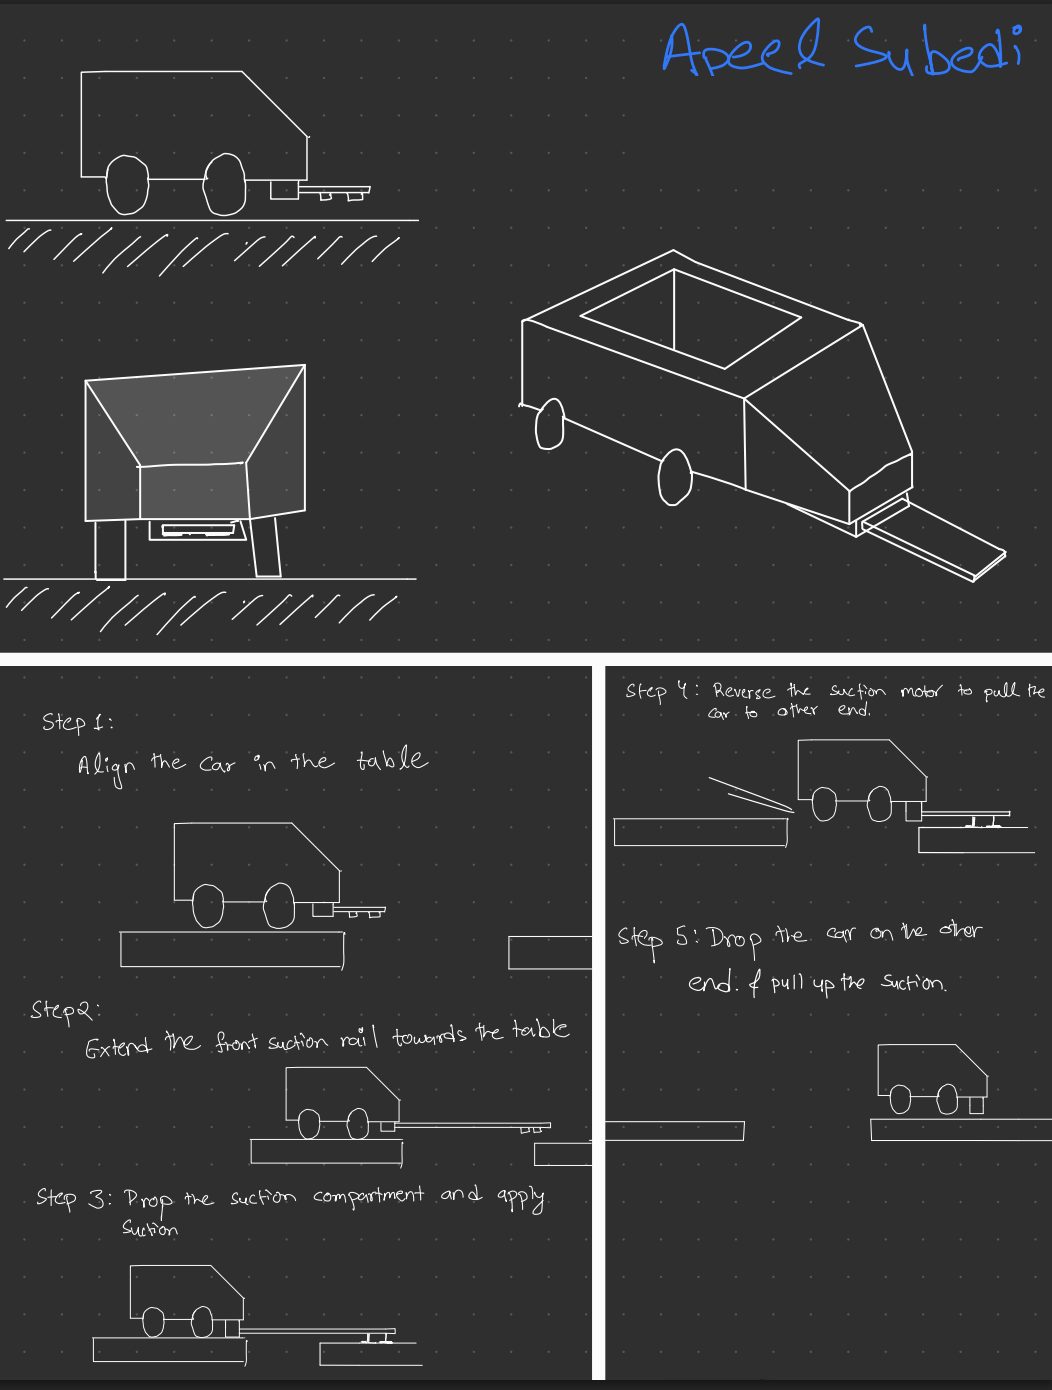 Apeel Subedi
Step 1:
Align the car in the table
Step2:
Extend the front suction rail towards the table
Step 3: Drop the suction compartment and apply
suction
Step 4: Reverse the suction motor to pull the
car to other end.
Step 5: Drop the car on the other
end. & pull up the suction.